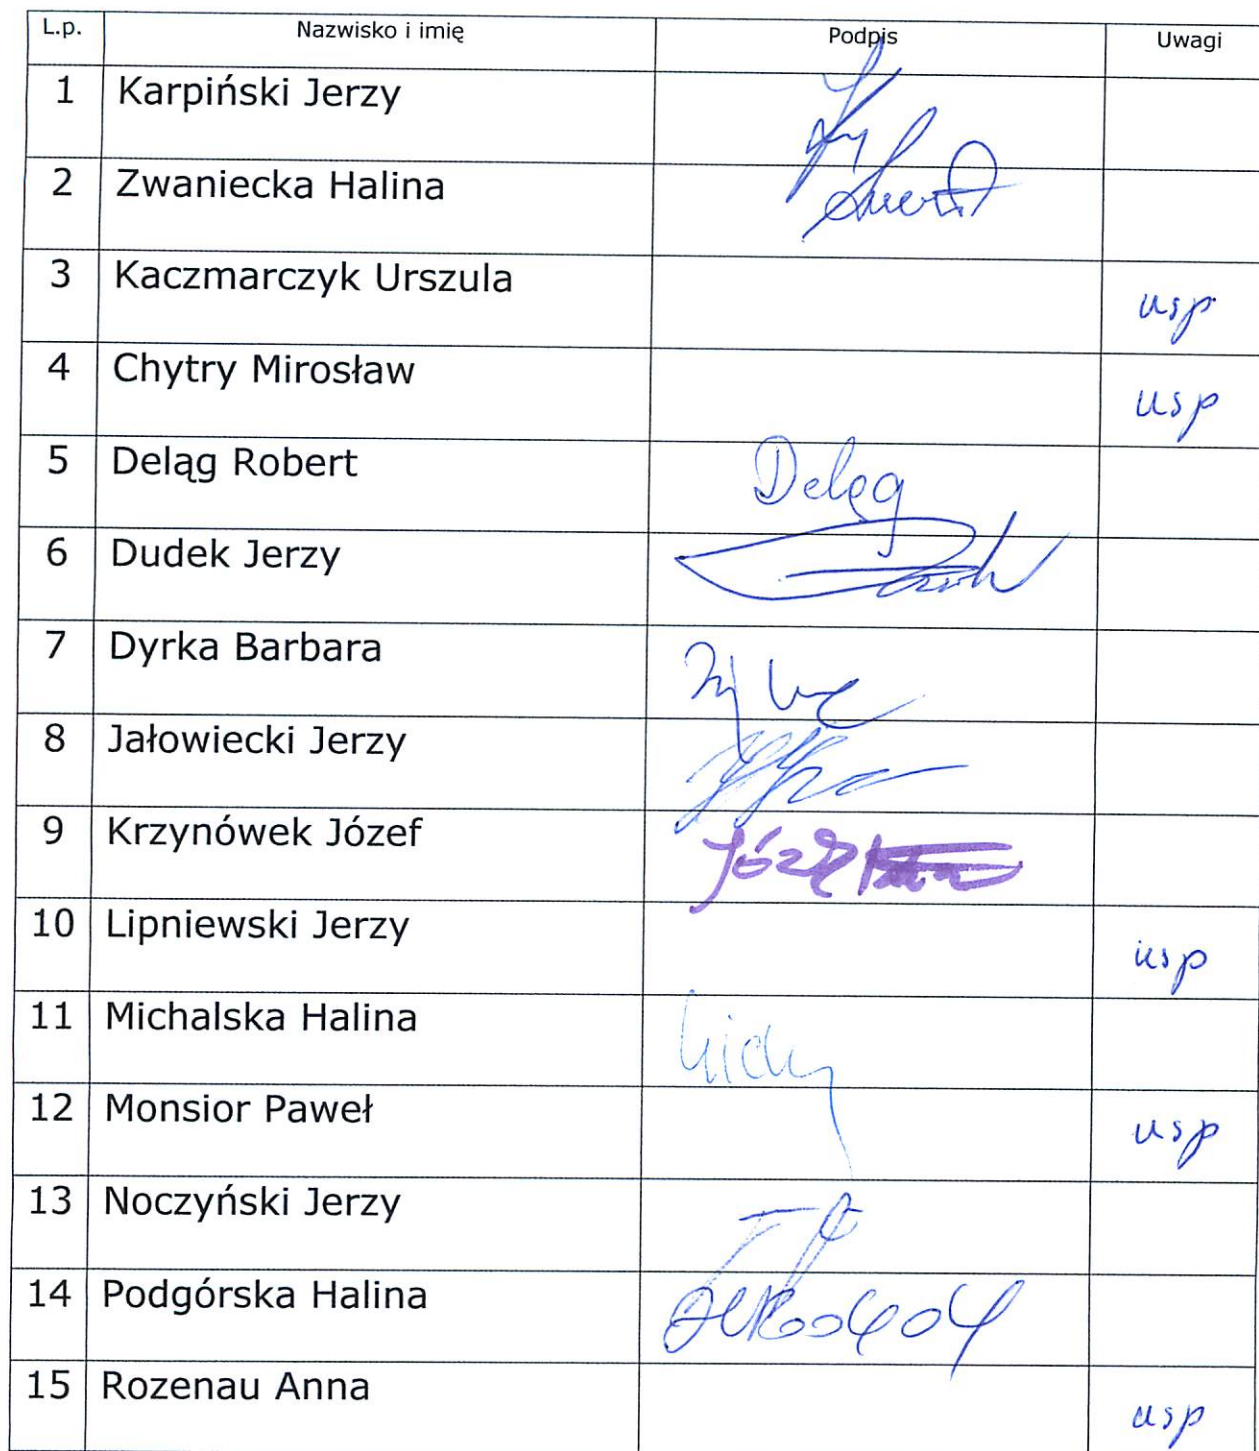 L.p. Nazwisko i imię Podpis Uwagi
1 Karpiński Jerzy
2 Zwaniecka Halina
3 Kaczmarczyk Urszula usp.
4 Chytry Mirosław usp
5 Deląg Robert Deląg
6 Dudek Jerzy
7 Dyrka Barbara
8 Jałowiecki Jerzy
9 Krzynówek Józef Józef
10 Lipniewski Jerzy usp
11 Michalska Halina
12 Monsior Paweł usp
13 Noczyński Jerzy
14 Podgórska Halina
15 Rozenau Anna usp